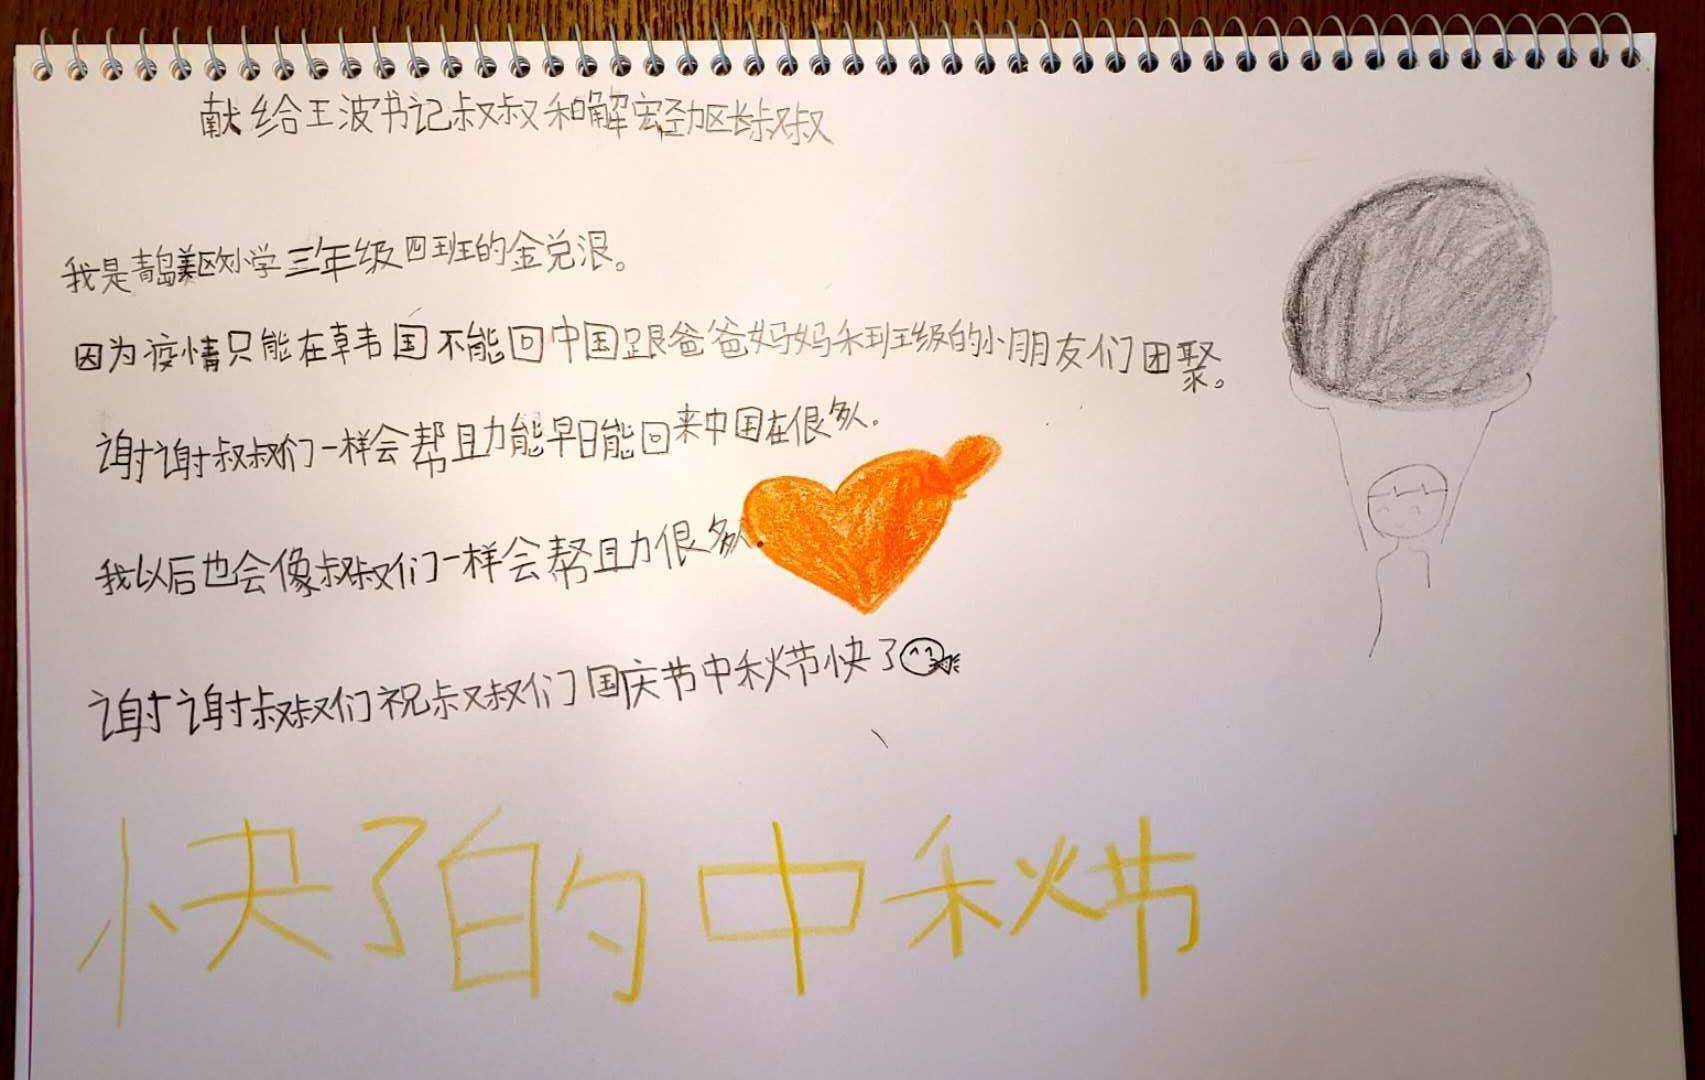 献给王波书记叔叔和解宏劲区长叔叔
我是青岛美欧小学三年级四班的金兑泿。
因为疫情只能在韩国不能回中国跟爸爸妈妈禾班级的小朋友们团聚。
谢谢叔叔们一样会帮助能早日能回来中国在很多人.
我以后也会像叔叔们一样会帮助很多人.
谢谢叔叔们祝叔叔们国庆节中秋节快了
快了的中秋节